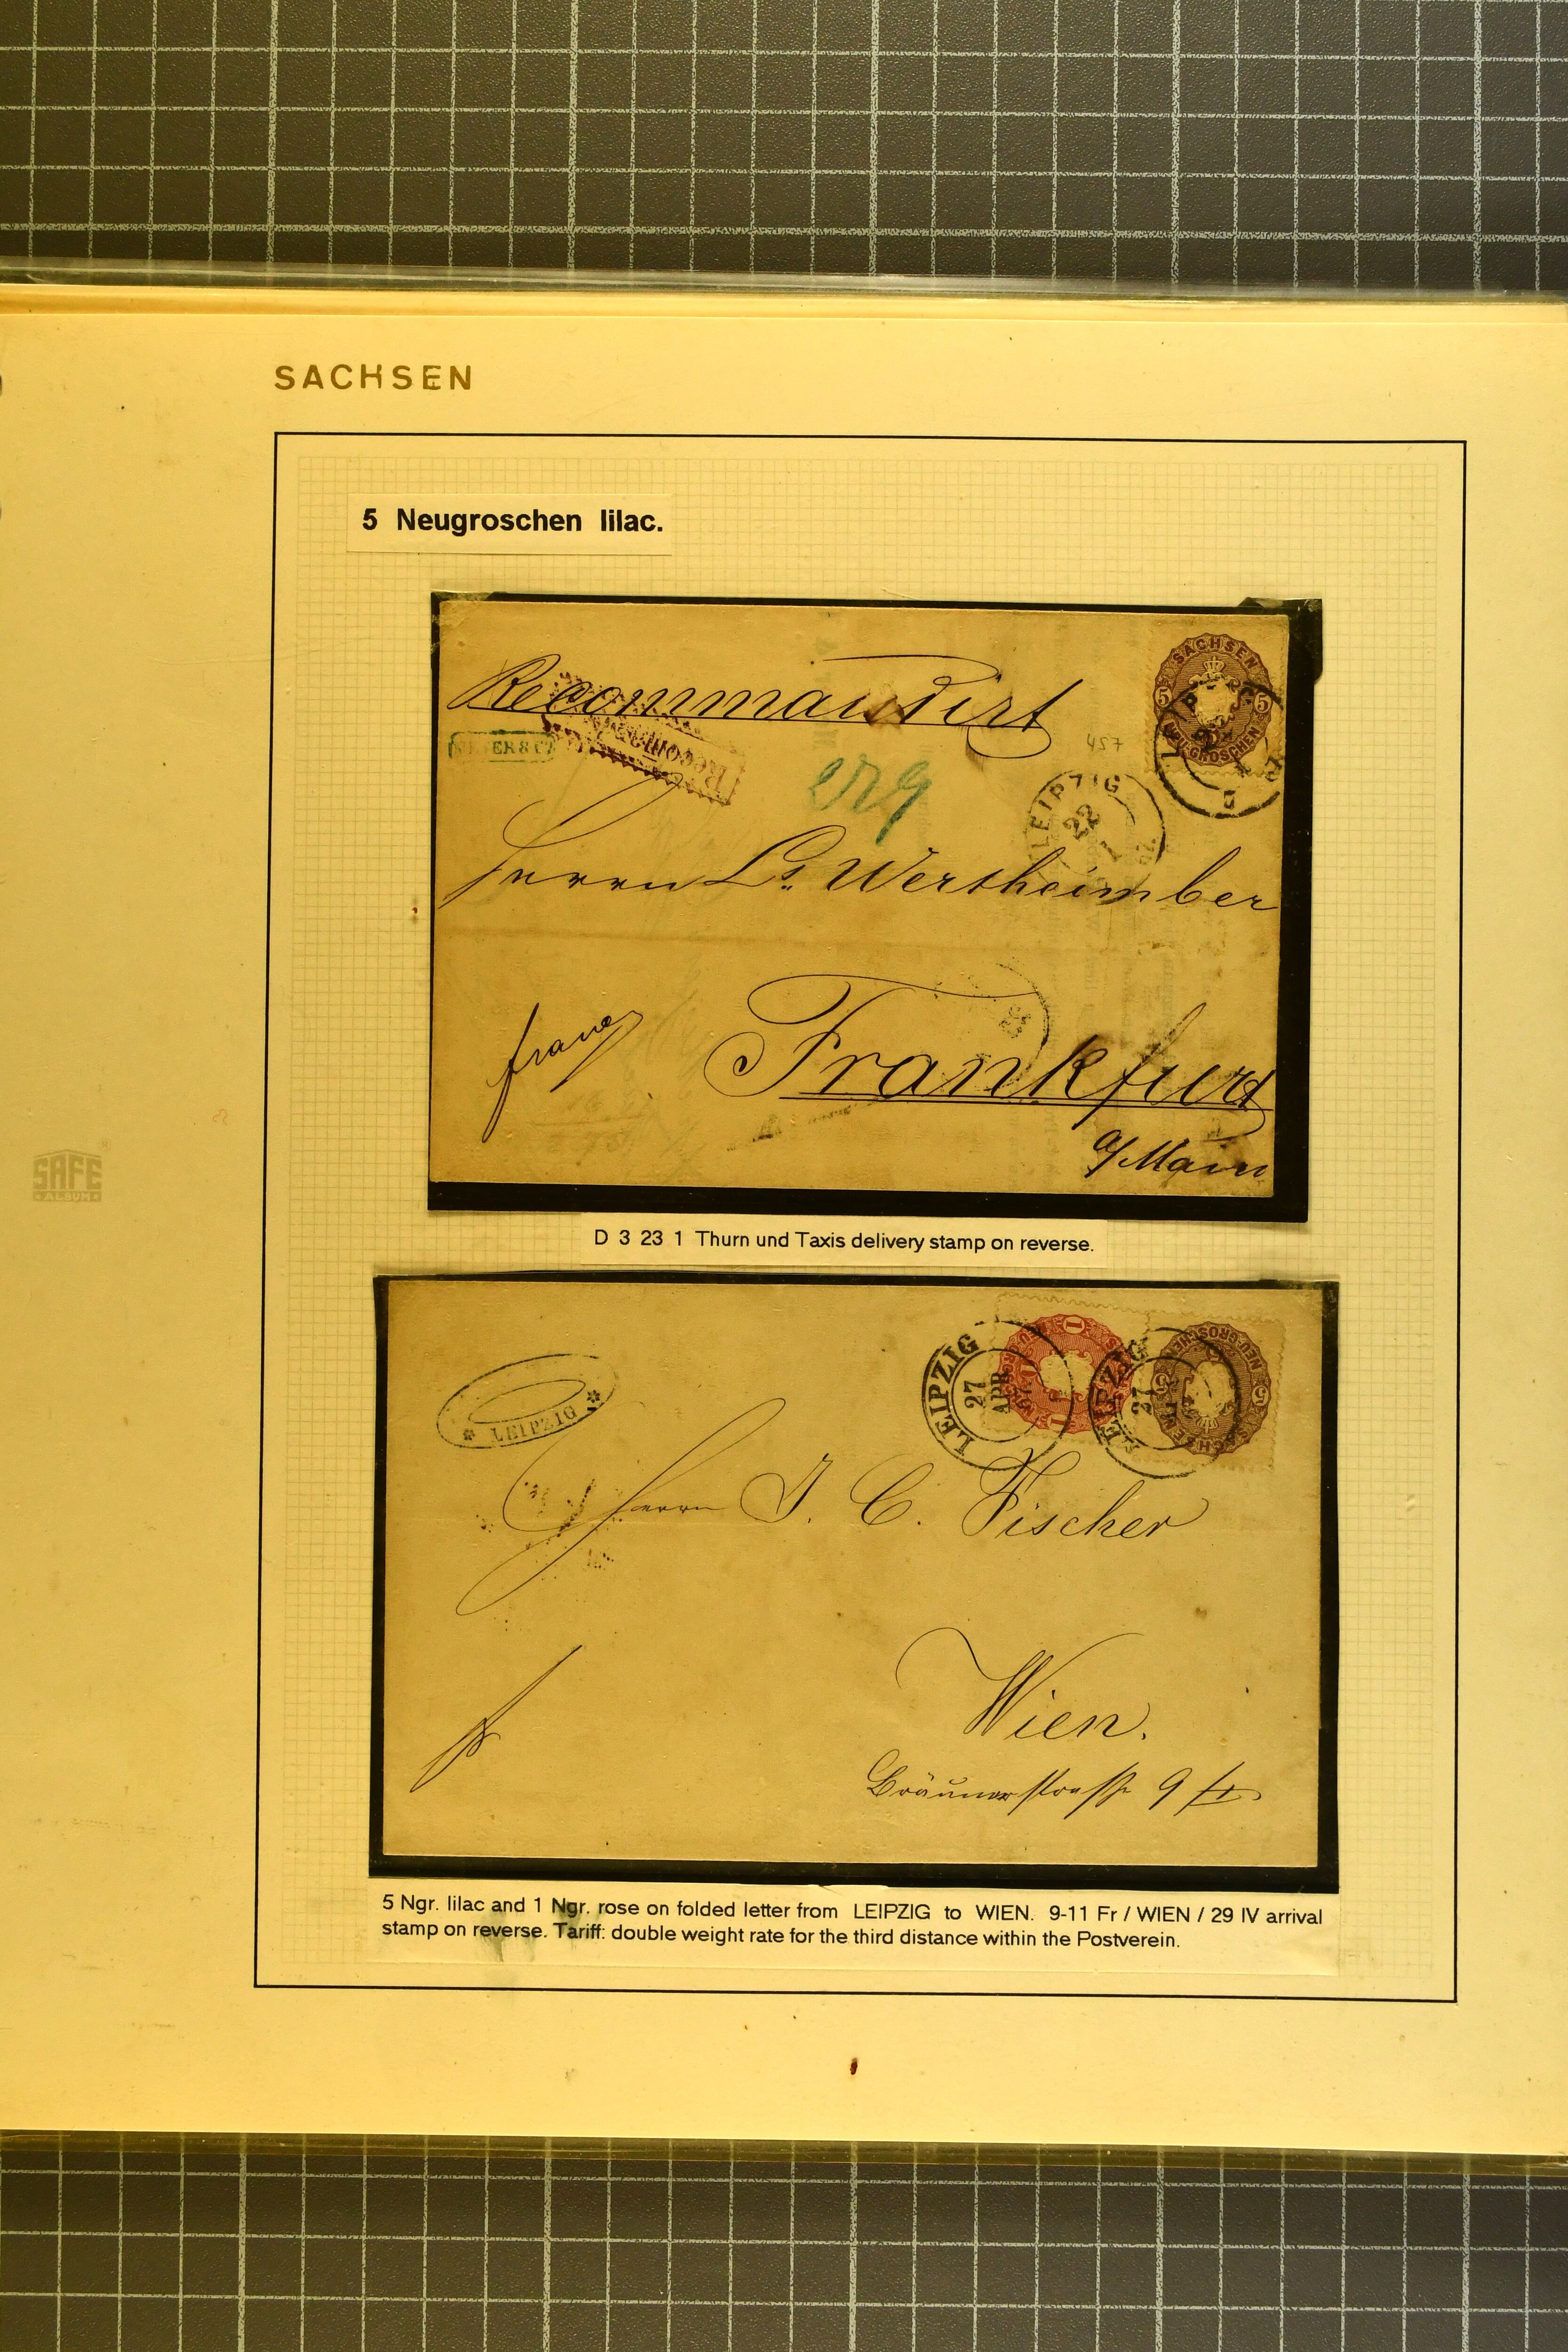 SACHSEN
5 Neugroschen lilac.
Recommandirt
SACHSEN
5 5
NEU-GROSCHEN
LEIPZIG
Recom
457
LEIPZIG
22
1
Herrn Ls. Wertheimber
franco
Frankfurt
a/Main
SAFE
ALBUM
D 3 23 1 Thurn und Taxis delivery stamp on reverse.
LEIPZIG
27
APR
LEIPZIG
27
1
NEU-GROSCHEN
5 5
SACHSEN
LEIPZIG
Herrn J. C. Fischer
Wien.
Bräunerstraße 9
5 Ngr. lilac and 1 Ngr. rose on folded letter from LEIPZIG to WIEN. 9-11 Fr / WIEN / 29 IV arrival
stamp on reverse. Tariff: double weight rate for the third distance within the Postverein.